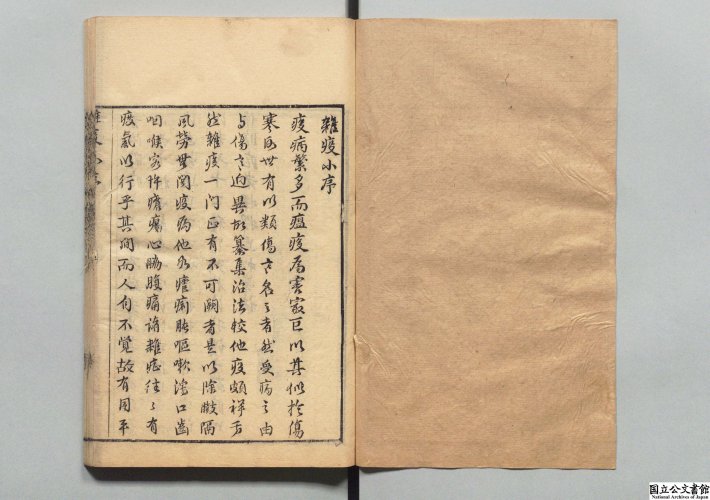 雜疫小序
疫病繁多而瘟疫為害最巨以其似於傷
寒故世有以類傷寒名之者然受病之由
与傷寒迥異故纂集治法較他疫頗詳若
然雜疫一门正有不可闕者是以除
風勞無関疫病他如瘧痢脹嘔嗽瀉口齒
咽喉客忤癰心腦腹痛諸雜症往々有
疫氣以行乎其间而人自不覺故有用平
国立公文書館
National Archives of Japan